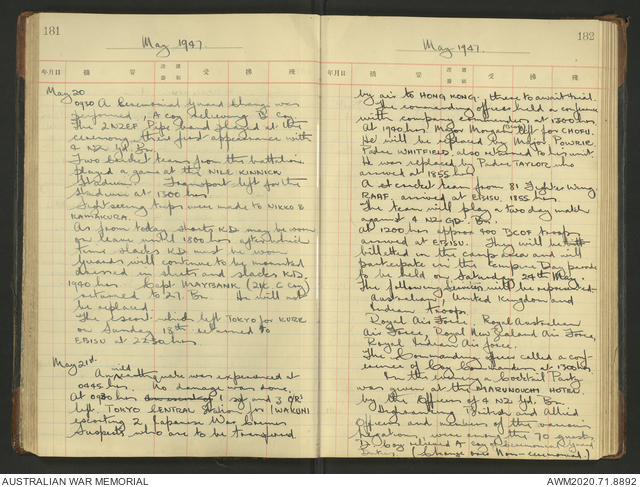 181
May 1947.
年月日 摘 要 受 拂 残
May 20
0930 A Ceremonial Guard Change was
performed, A Coy relieving D Coy.
The 2NZEF Pipe band played at the
ceremony, their first appearance with
4 NZ Gd. Bn.
Two cricket teams from the battalion
played a game at the NILE KINNICK
Stadium. Transport left for the
stadium at 1300 hrs.
Sight seeing trips were made to NIKKO &
KAMAKURA.
As from today shorts K.D. may be worn
on leave until 1800 hrs after which
time slacks K.D. must be worn.
Guards will continue to be mounted
dressed in shirts and slacks K.D.
1940 hrs Capt. MAYBANK (2i/c C Coy)
returned to 27 Bn. He will not
be replaced.
The escort which left TOKYO for KURE
on Sunday 18th returned to
EBISU at 2230 hrs.
May 21st.
A mild earthquake was experienced at
0445 hrs. No damage was done.
At 0930 hrs 1 Sgt and 3 OR's
left TOKYO CENTRAL Station for IWAKUNI
escorting 2 Japanese War Crimes
Suspects who are to be transferred
182
May 1947.
年月日 摘 要 受 拂 残
by air to HONG KONG. there to await trial.
The commanding officer held a conference
with company commanders at 1300 hrs.
At 1940 hrs Major Morgan left for CHOFU.
He will be replaced by Major POWRIE.
Padre WHITFIELD also returned to his unit.
He was replaced by Padre TAYLOR who
arrived at 1855 hrs.
A cricket team from 81 Fighter Wing
RAAF, arrived at EBISU, 1855 hrs.
The team will play a two day match
against 4 NZ GD. Bn.
At 1200 hrs approx 400 BCOF troops
arrived at EBISU. They will be
billetted in the camp area and will
participate in the Empire Day parade
to be held on Saturday 24th May.
The following services will be represented:
Australian, United Kingdom and
Indian Troops.
Royal Air Force, Royal Australian
Air Force, Royal New Zealand Air Force,
Royal Indian Air force.
The Commanding officer called a conf-
erence of Coy Commanders at 1300 hrs.
In the evening a Cocktail Party
was given at the MARUNOUCHI HOTEL
by the Officers of 4 NZ Gd. Bn.
British and Allied
Officers and members of the various
legations were among the 70 guests.
D Coy relieved A Coy
(Change over Non-ceremonial.)
AUSTRALIAN WAR MEMORIAL
AWM2020.71.8892